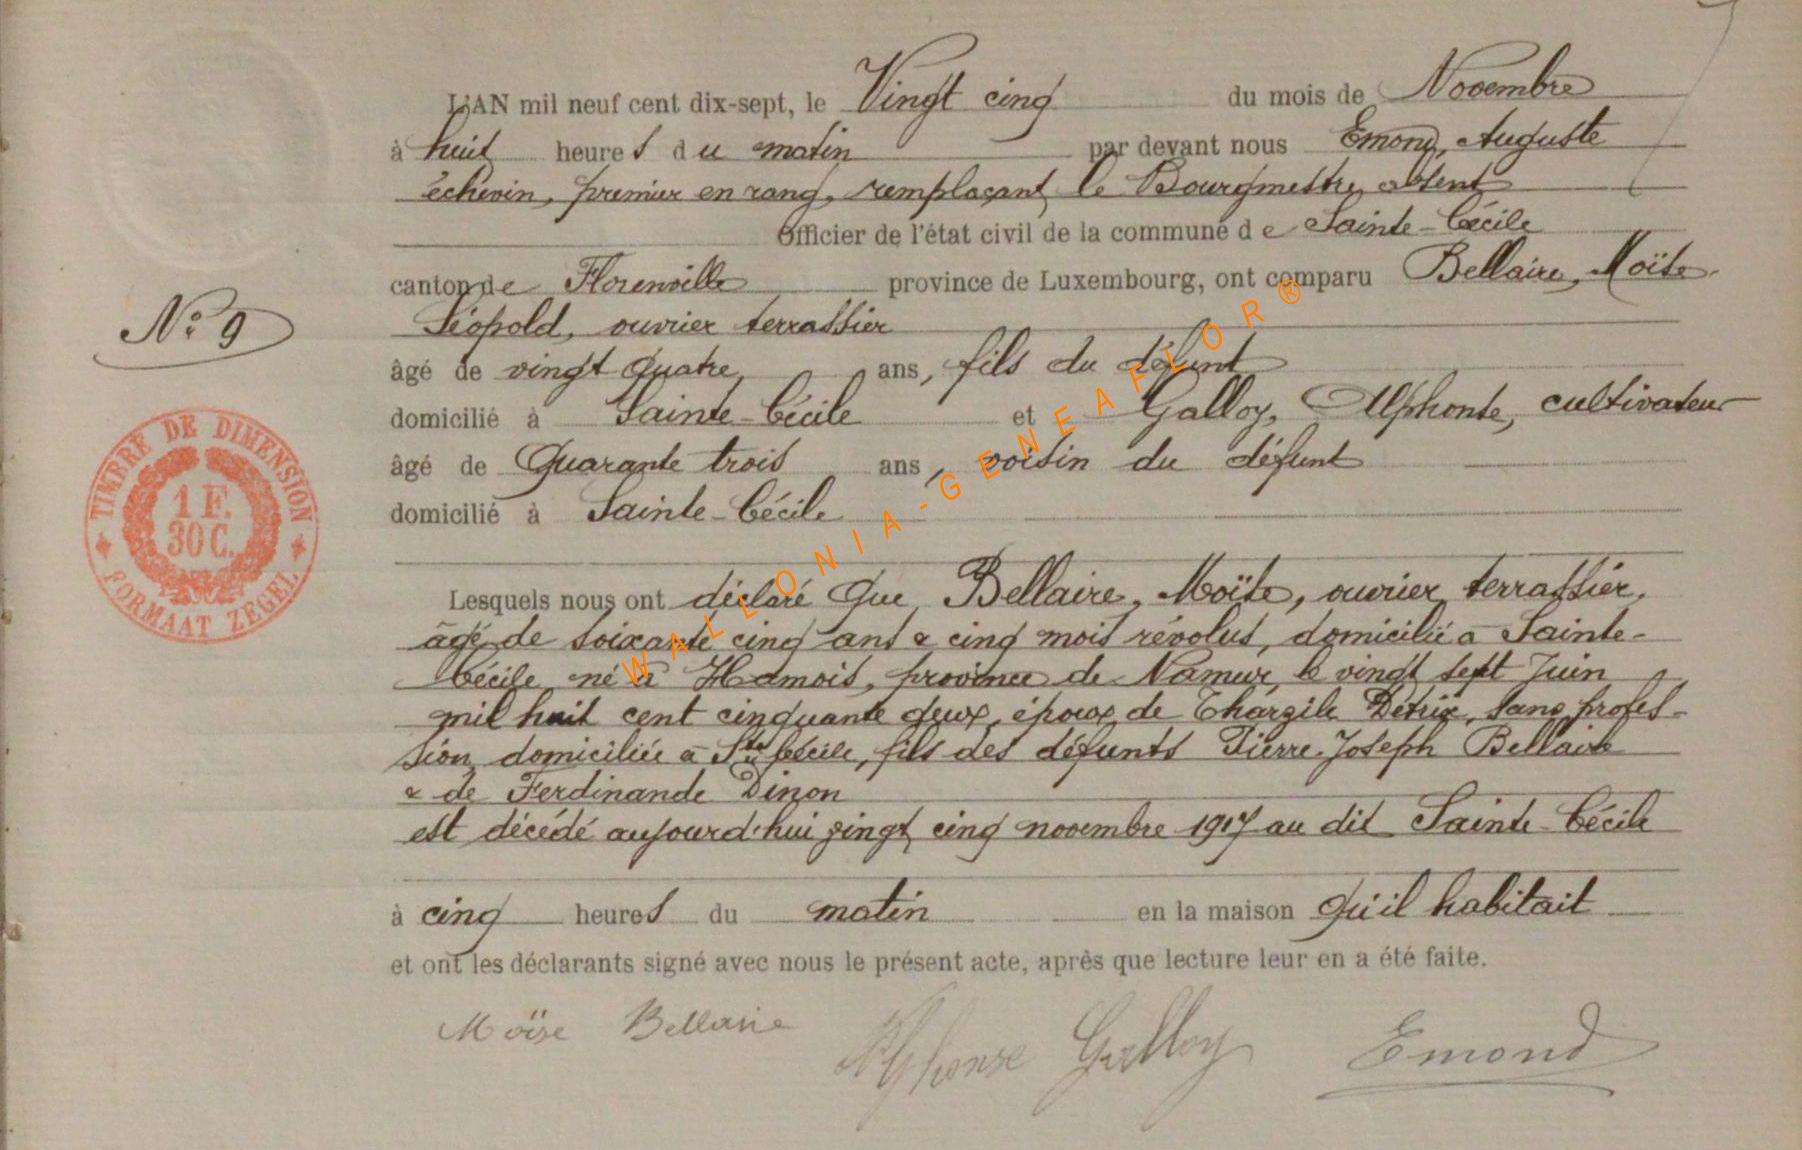 L'AN mil neuf cent dix-sept, le Vingt cinq du mois de Novembre
à huit heures du matin par devant nous Emond, Auguste
échevin, premier en rang, remplaçant le Bourgmestre absent
Officier de l'état civil de la commune de Sainte-Cécile
canton de Florenville province de Luxembourg, ont comparu Bellaire, Moïse
Léopold, ouvrier terrassier
N° 9
âgé de vingt quatre ans, fils du défunt
domicilié à Sainte-Cécile et Galloy, Alphonse, cultivateur
âgé de Quarante trois ans, voisin du défunt
domicilié à Sainte-Cécile
TIMBRE DE DIMENSION
1 F.
30 C.
FORMAAT ZEGEL
WALLONIA-GENEAFLOR®
Lesquels nous ont déclaré Que Bellaire, Moïse, ouvrier terrassier,
âgé de soixante cinq ans & cinq mois révolus, domicilié à Sainte-
Cécile né à Hamois, province de Namur, le vingt sept Juin
mil huit cent cinquante deux, époux de Thargile Détrix, sans profes-
sion, domiciliée à Ste Cécile, fils des défunts Pierre-Joseph Bellaire
& de Ferdinande Dinon
est décédé aujourd'hui vingt cinq novembre 1917 au dit Sainte-Cécile
à cinq heures du matin en la maison qu'il habitait
et ont les déclarants signé avec nous le présent acte, après que lecture leur en a été faite.
Moïse Bellaire Alphonse Galloy Emond